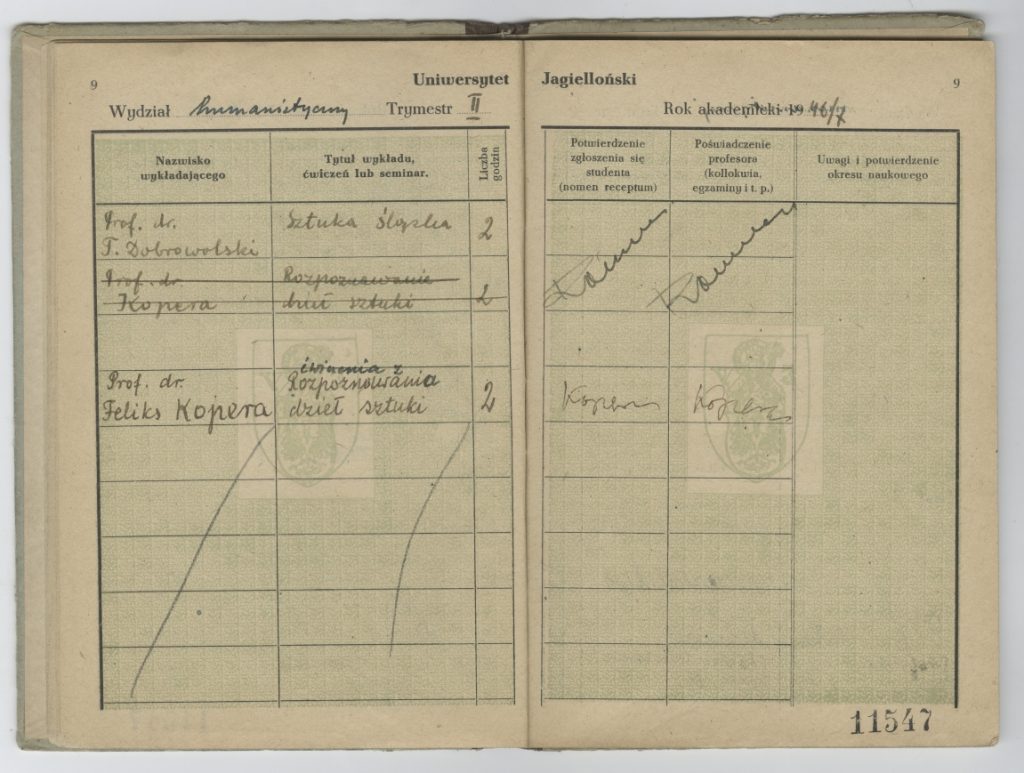 9
Uniwersytet Jagielloński
9
Wydział humanistyczny Trymestr II
Rok akademicki 1946/7
Nazwisko
wykładającego
Tytuł wykładu,
ćwiczeń lub seminar.
Liczba
godzin
Potwierdzenie
zgłoszenia się
studenta
(nomen receptum)
Poświadczenie
profesora
(kollokwia,
egzaminy i t. p.)
Uwagi i potwierdzenie
okresu naukowego
Prof. dr.
T. Dobrowolski
Sztuka śląska
2
Prof. dr.
Kopera
Rozpoznawanie
dzieł sztuki
2
Prof. dr.
Feliks Kopera
ćwiczenia z
Rozpoznawania
dzieł sztuki
2
Kopera
Kopera
11547